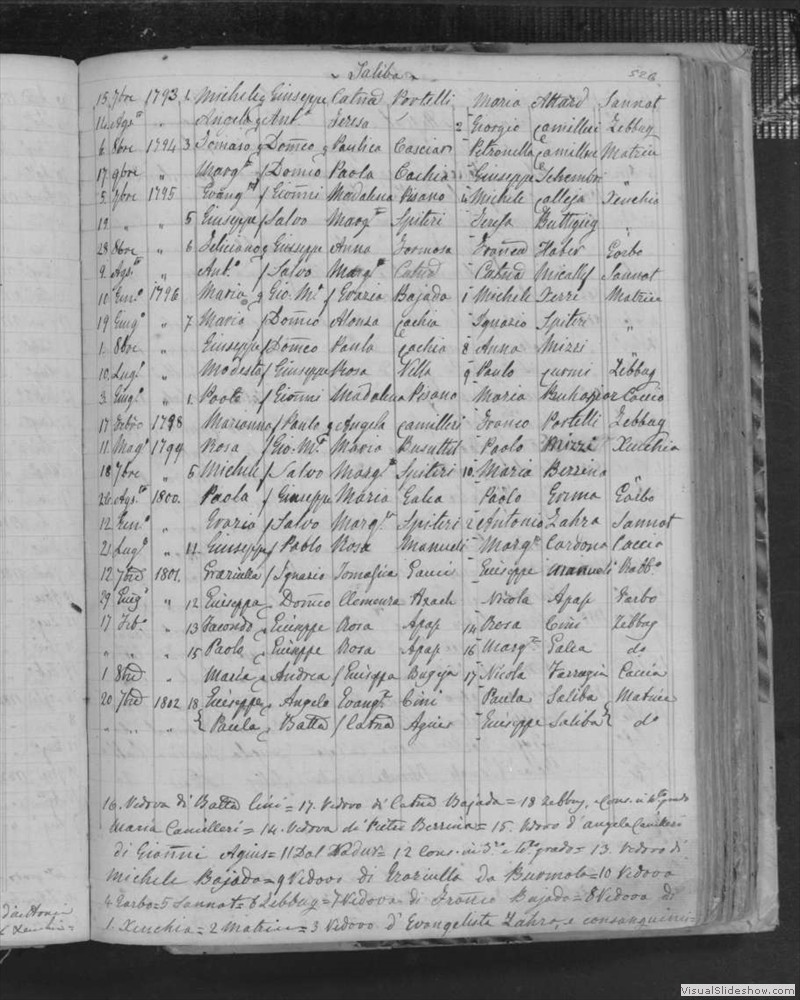 Saliba
526
15 7bre 1793 1 Michele q Giuseppe Catnā Portelli Maria Attard Sannat
14 Ags.to " Angela q Ant.o Teresa 2 Giorgio Camilleri Zebbug
6 8bre 1794 3 Tomaso q Domco q Paulica Casciar Petronilla Camilleri Matrice
17 9bre " Marg.ta f Domco Paola Cachia Giuseppe Schembri "
5 7bre 1795 Evang.ta f Gionni Madalena Pisano 4 Michele Calleja Xeuchia
19 " " 5 Giuseppe f Salvo Marg.ta Spiteri Teresa Buttigieg "
28 8bre " 6 Feliciano q Giuseppe Anna Formosa Haber Garbo
9 Ags.to " Ant.o f Salvo Marg.ta Catnā Micallef Sannat
10 Gen.o 1796 Maria q Gio. M.a f Grazia Bajada 1 Michele Xerri Matrice
19 Giug.o " 7 Maria f Domco Alonsa Cachia Ignazio Spiteri "
1 8bre " Giuseppa f Domco Paula Cachia 8 Anna Mizzi "
10 Lug.o " Modesta f Giuseppe Rosa Vella 9 Paulo Curmi Zebbug
3 Giug.o " 1 f Gionni Madalena Pisano Maria Caccia
17 Febro 1798 Marianna f Paulo q Angela Camilleri Franco Portelli Zebbug
11 Mag.o 1799 Rosa f Gio. M.a Maria Busuttil Paolo Mizzi Xeuchia
18 7bre " 5 Michele f Salvo Marg.ta Spiteri 10 Maria Berrina "
26 Ags.to 1800 Paola f Giuseppe Maria Galea Paolo Grima Garbo
12 Gen.o " Grazia f Salvo Marg.ta Spiteri 2 Antonio Zahra Sannat
21 Lug.o " 11 Giuseppe f Pablo Rosa Manueli Marg.ta Cardona Caccia
12 7bre 1801 Graziulla f Ignazio Tomasia Gauci Giuseppe Manueli Rabb.o
29 Giug.o " 12 Giuseppa q Domco Clemenza Axach Nicola Apap Garbo
17 Feb.o " 13 Facondo q Giuseppe Rosa Apap 14 Rosa Cini Zebbug
" " " 15 Paolo q Giuseppe Rosa Apap 16 Marg.ta Galea do
1 8bre " Maria q Andrea f Giuseppa Bugeja 17 Nicola Farrugia Caccia
20 7bre 1802 18 Giuseppe q Angelo Evang.ta Cini Paula Saliba Matrice
" " " Paula q Batta f Catnā Agius Giuseppe Saliba do
16. Vedova di Batta Cini = 17. Vedovo di Catnā Bajada = 18 Zebbug, e Cons. in 4.to grado
Maria Camilleri = 14. Vedova di Pietro Berrina = 15. Vedovo d'Angela Camilleri
di Gionni Agius = 11 Dal = 12 Cons. in 3.o e 4.to grado = 13. Vedovo di
Michele Bajada = 9 Vedovo di Graziulla Da Burmola = 10 Vedova
4 Garbo = 5 Sannat = 6 Zebbug = 7 Vedova di Franco Bajada = 8 Vedova di
1. Xeuchia = 2 Matrice = 3 Vedovo d'Evangelista Zahra, e consanguinei =
VisualSlideshow.com